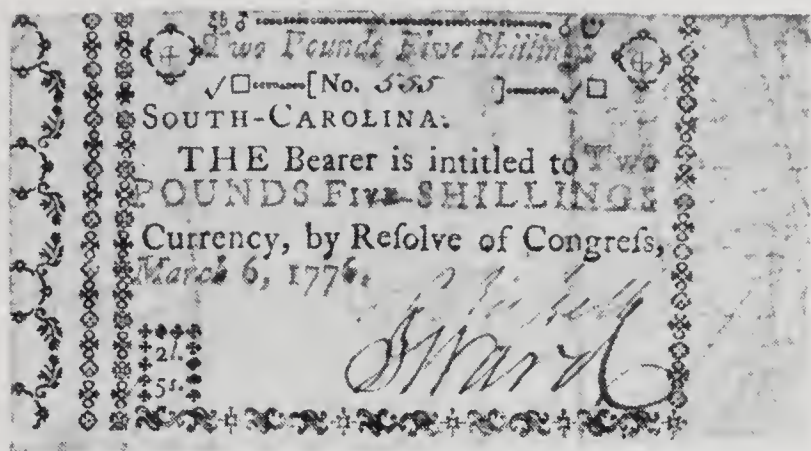 Two Pounds Five Shillings
[No. 555 ]
SOUTH-CAROLINA.
THE Bearer is intitled to Two
POUNDS FIVE SHILLINGS
Currency, by Reſolve of Congreſs,
March 6, 1776.
2l.
5s.
Ward